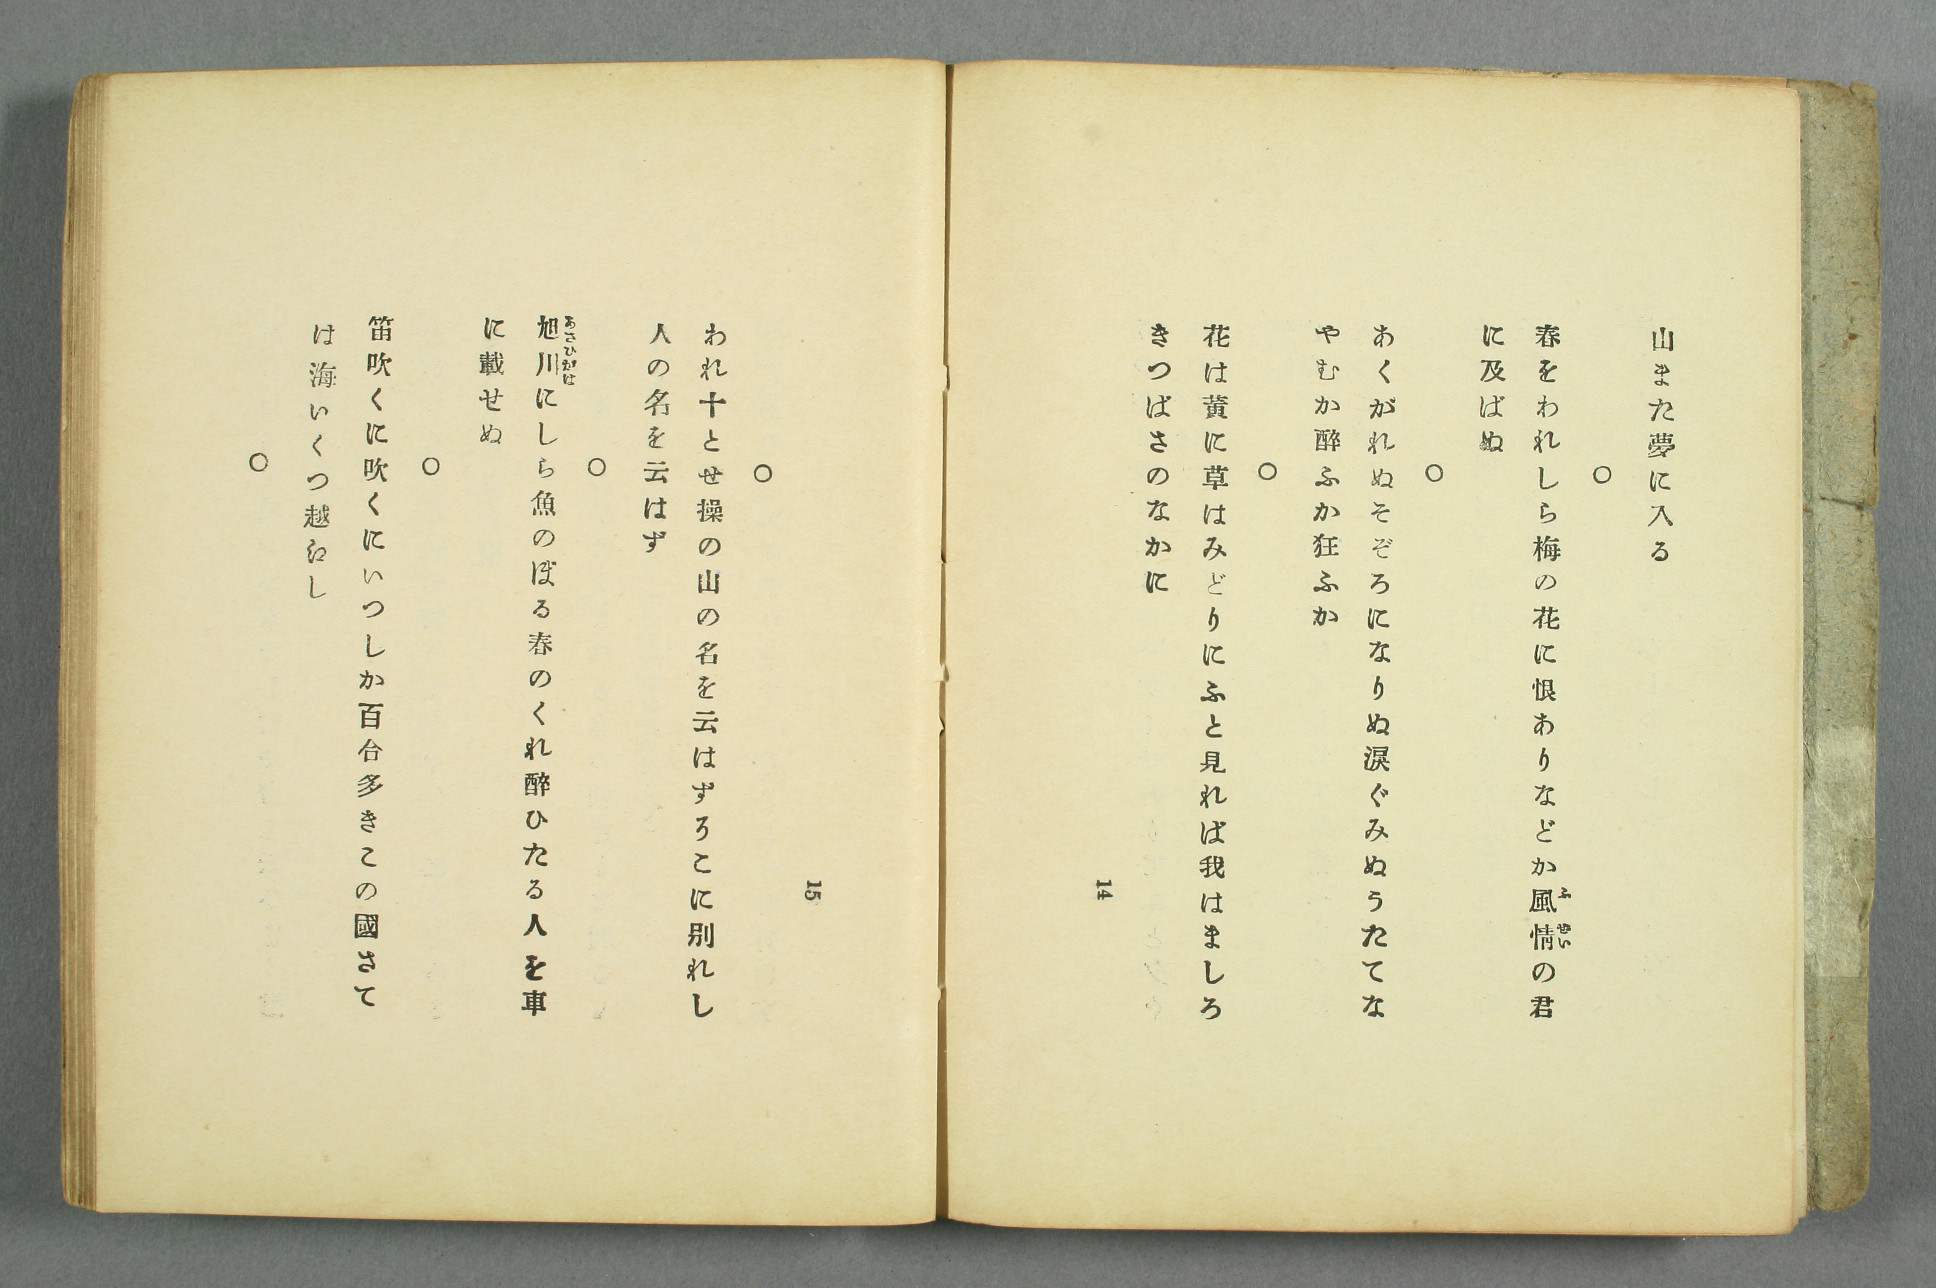 山また夢に入る
○
春をわれしら梅の花に恨ありなどか風情の君
ふぜい
に及ばぬ
○
あくがれぬそぞろになりぬ涙ぐみぬうたてな
やむか醉ふか狂ふか
○
花は黄に草はみどりにふと見れば我はましろ
きつばさのなかに
14
15
○
われ十とせ操の山の名を云はずそこに別れし
人の名を云はず
○
旭川にしら魚のぼる春のくれ醉ひたる人を車
あさひがは
に載せぬ
○
笛吹くに吹くにいつしか百合多きこの國さて
は海いくつ越えし
○